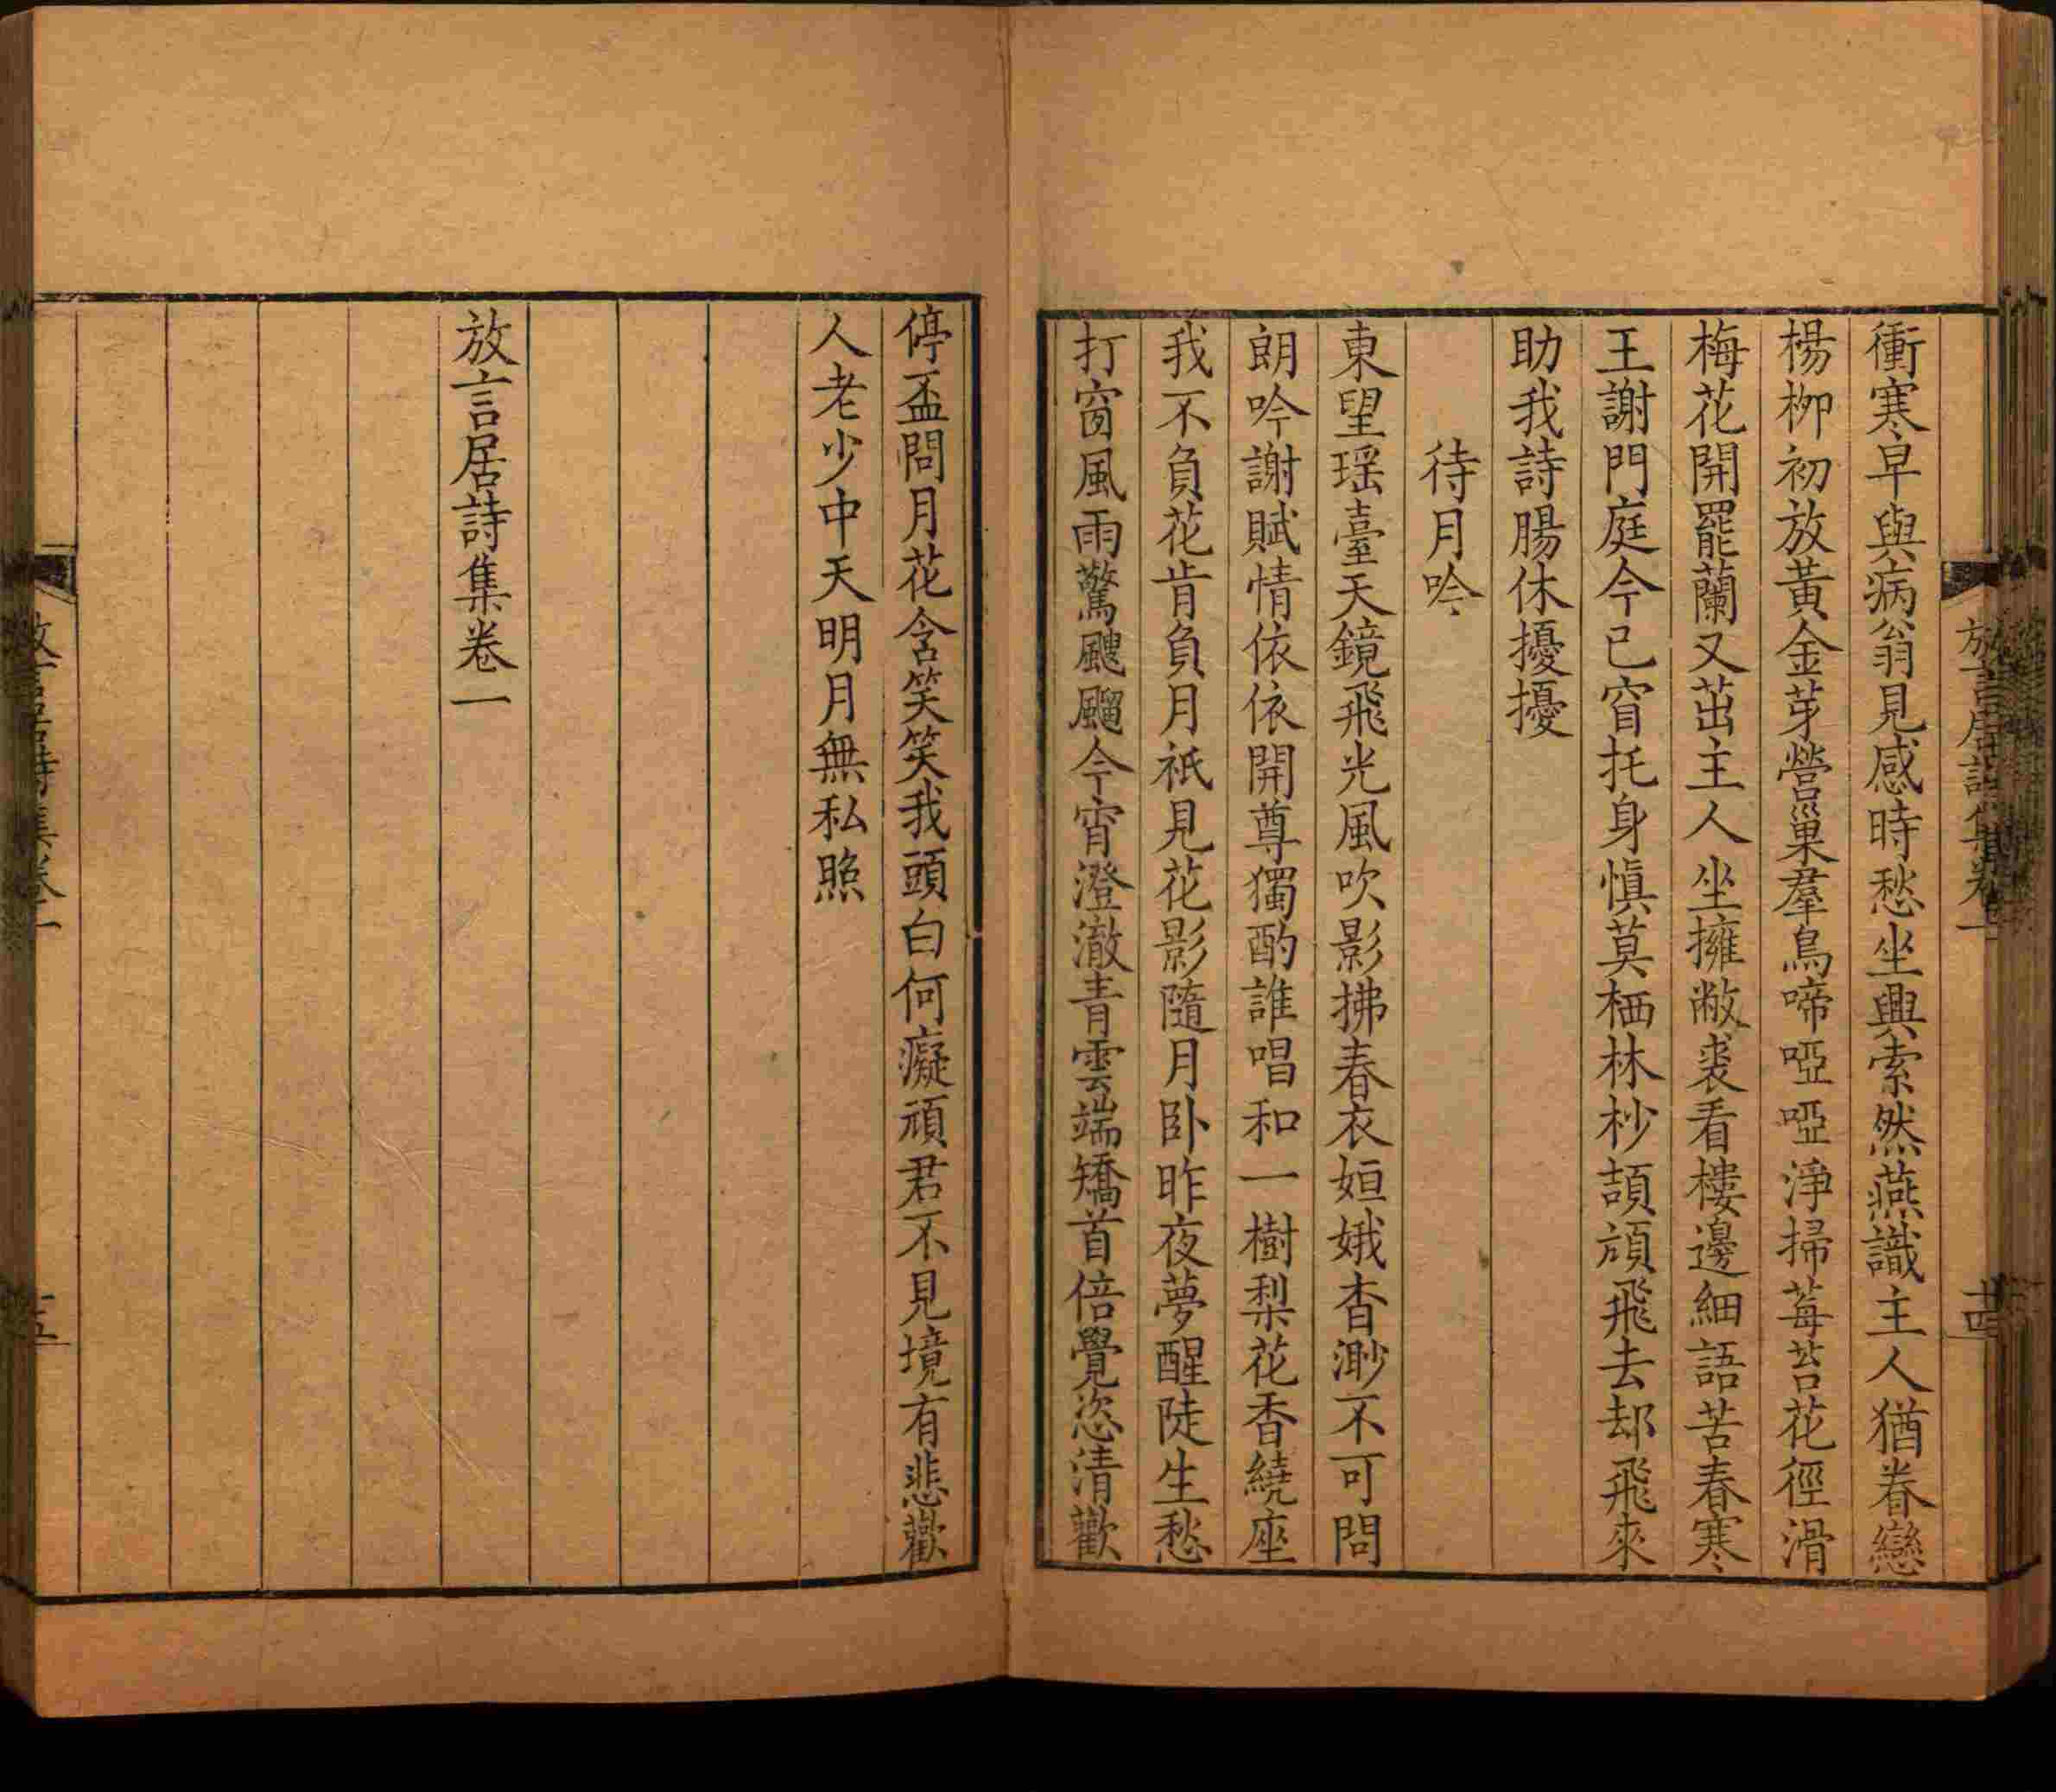 放言居詩集卷一
十四
衝寒早與病翁見感時愁坐興索然燕識主人猶眷戀
楊柳初放黃金芽營巢羣鳥啼啞啞淨掃莓苔花徑滑
梅花開罷蘭又茁主人坐擁敝裘看樓邊細語苦春寒
王謝門庭今已窅托身愼莫栖林杪頡頏飛去却飛來
助我詩腸休擾擾
待月吟
東望瑶臺天鏡飛光風吹影拂春衣姮娥杳渺不可問
朗吟謝賦情依依開尊獨酌誰唱和一樹梨花香繞座
我不負花肯負月祇見花影隨月卧昨夜夢醒陡生愁
打窗風雨驚颼飀今宵澄澈青雲端矯首倍覺恣清歡
停盃問月花含笑笑我頭白何癡頑君不見境有悲歡
人老少中天明月無私照
放言居詩集卷一
放言居詩集卷一
十五